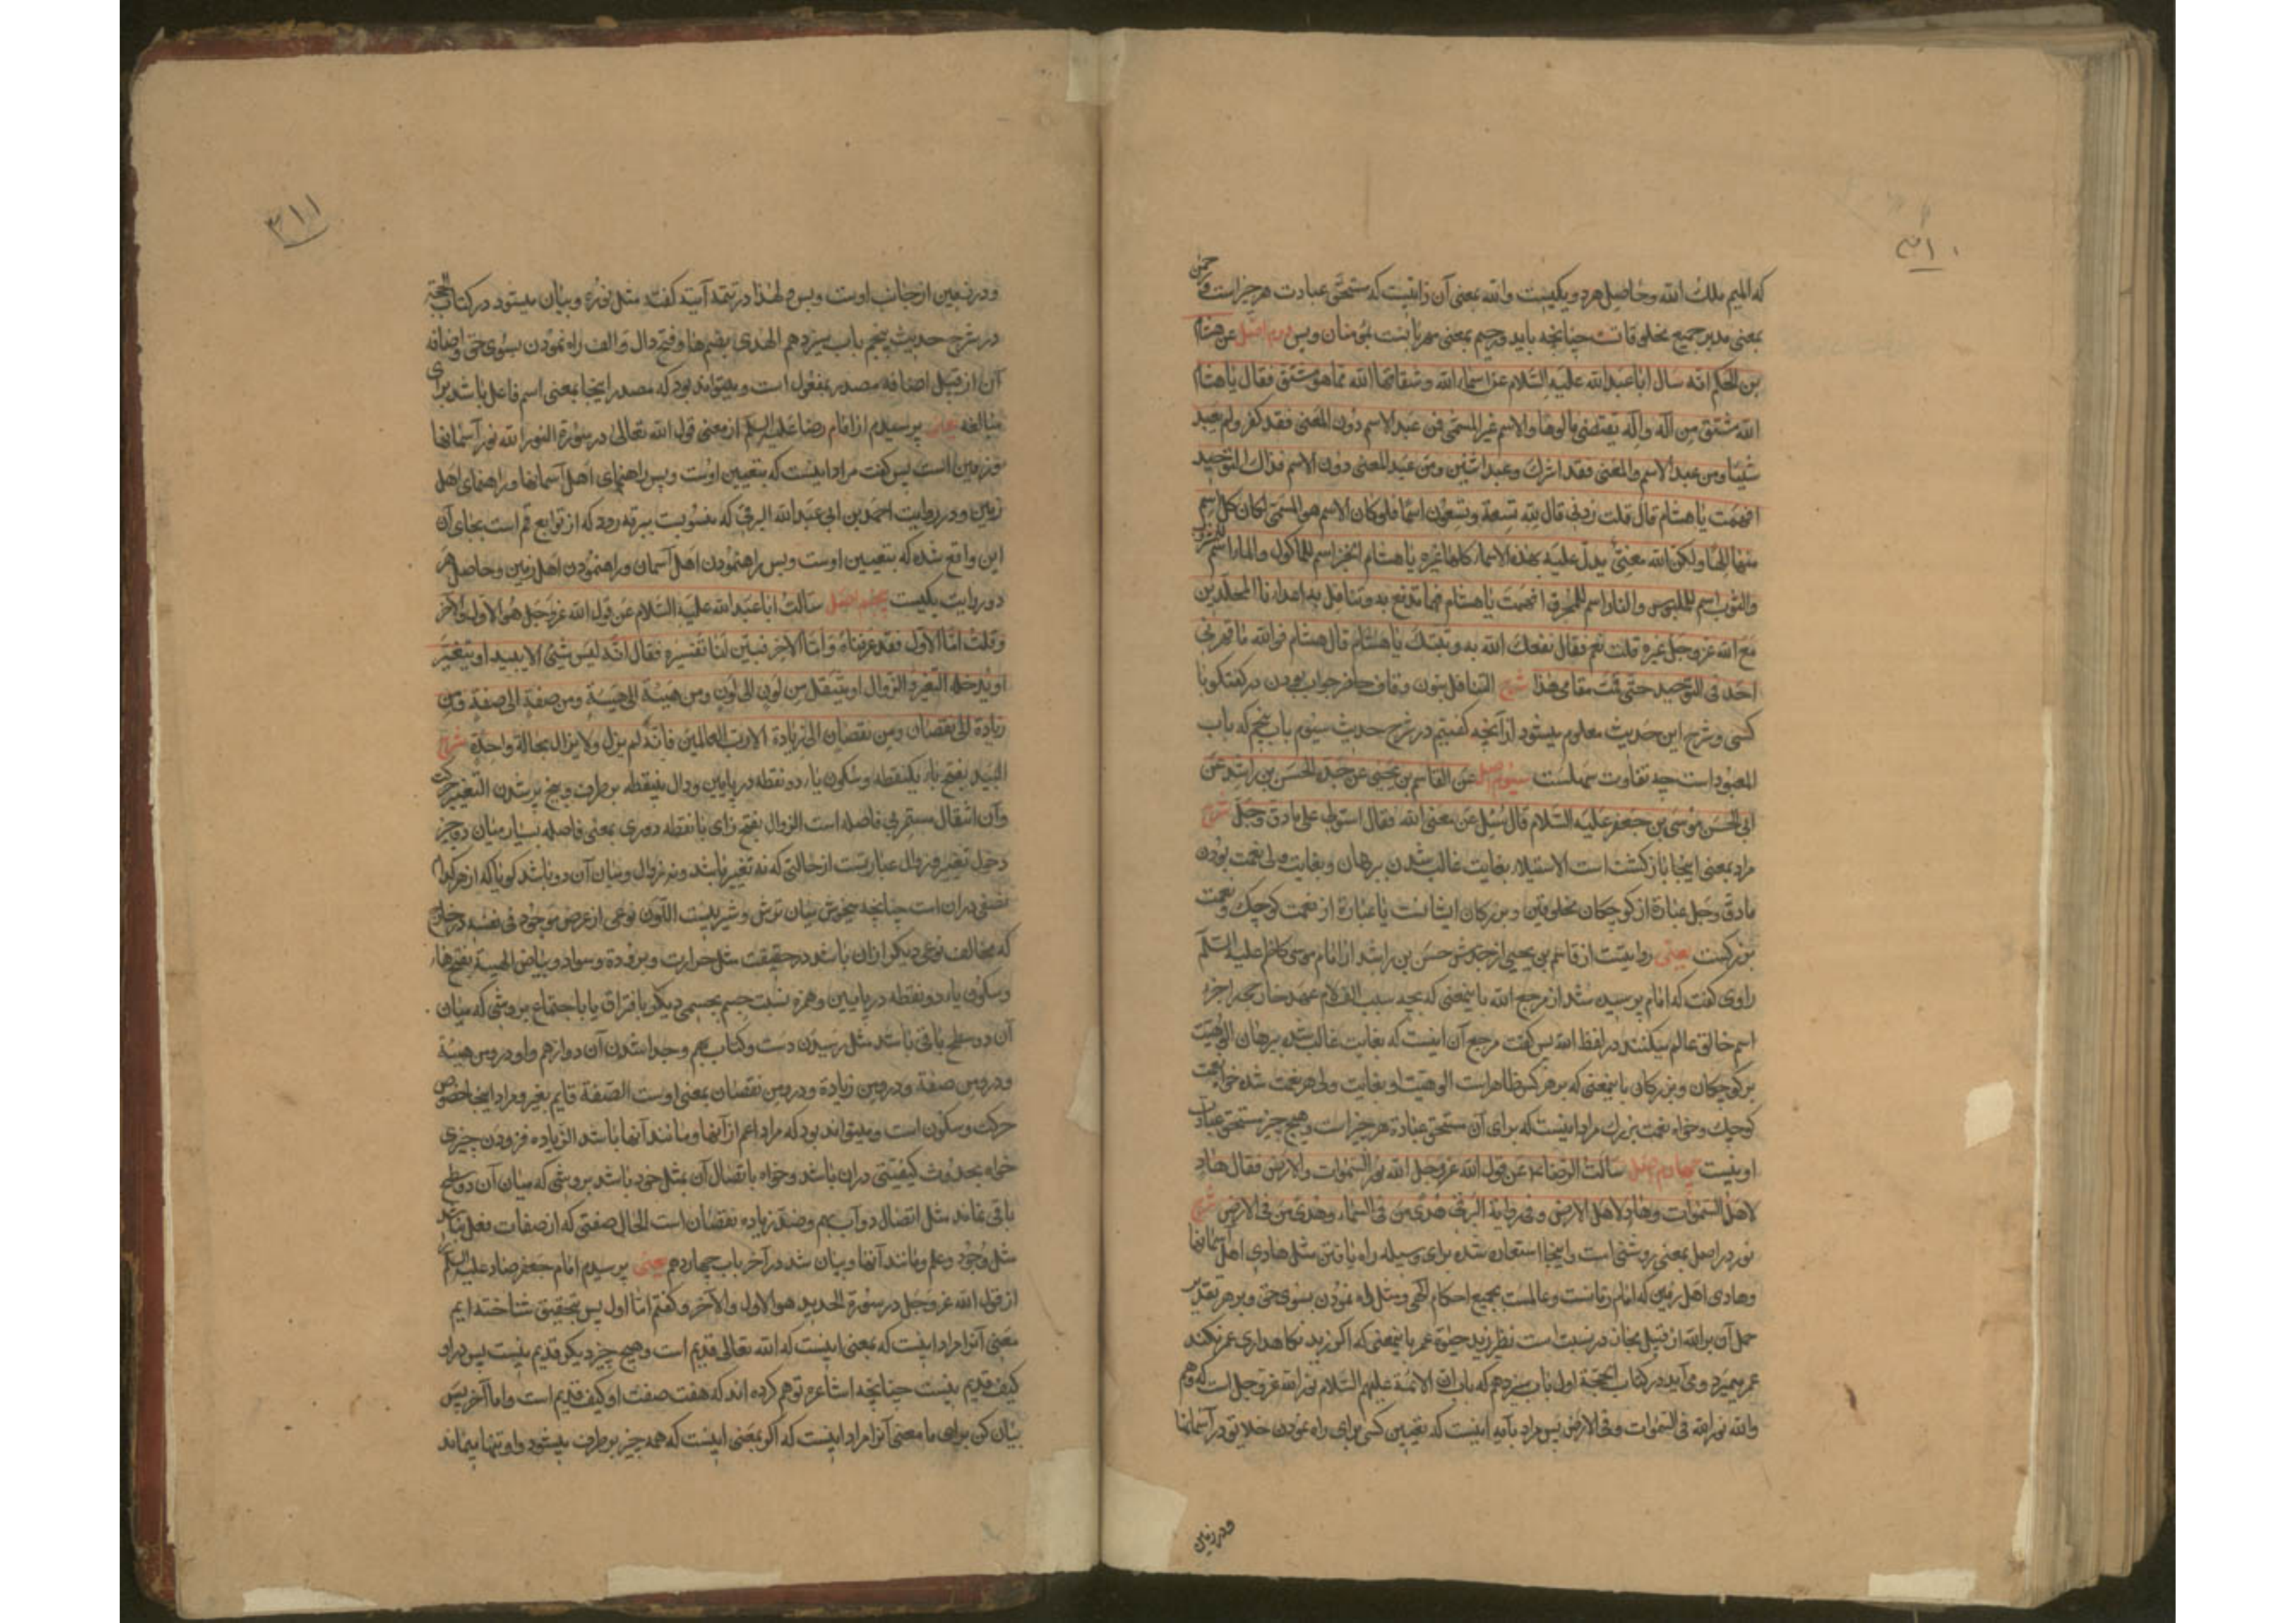 ۳۱۰
که المیم ملک الله و حاصل هر دو یکیست والله بمعنی آن ذاتیست که مستحق عبادت هر چیز است و رحمن
بمعنی مدبر جمیع مخلوقات چنانچه باید و رحیم بمعنی مهربانست بمؤمنان و بس دوم اصل عن هشام
بن الحکم انه سال اباعبدالله علیه السلام عن اسماء الله و شقاقها الله مما هو مشتق فقال یا هشام
الله مشتق من اله و اله یقتضی مالوها والاسم غیر المسمی فمن عبد الاسم دون المعنی فقد کفر و لم یعبد
شیئا و من عبد الاسم والمعنی فقد اشرک و عبد اثنین و من عبد المعنی دون الاسم فذاک التوحید
افهمت یا هشام قال قلت زدنی قال لله تسعة و تسعون اسما فلو کان الاسم هو المسمی لکان کل اسم
منها الها ولکن الله معنی یدل علیه بهذه الاسماء کلها غیره یا هشام الخبز اسم للماکول والماء اسم للمشروب
والثوب اسم للملبوس والنار اسم للمحرق افهمت یا هشام فهما تدفع به و تناقل به اعداءنا المتخذین
مع الله عز و جل غیره قلت نعم فقال نفعک الله به و ثبتک یا هشام قال هشام فوالله ما قهرنی
احد فی التوحید حتی قمت مقامی هذا شرح التناقل بنون و قاف حاضر جواب بودن در گفتگو با
کسی و شرح این حدیث معلوم میشود از آنچه گفتیم در شرح حدیث سیوم باب پنجم که باب
المعبود است چه تفاوت سهلست سیوم اصل عن القاسم بن یحیی عن جده الحسن بن راشد عن
ابی الحسن موسی بن جعفر علیه السلام قال سئل عن معنی الله فقال استولی علی ما دق و جل شرح
مراد بمعنی اینجا بازگشت است الاستیلاء بغایت غالب شدن ببرهان و بغایت ولی نعمت بودن
ما دق و جل عبارة از کوچکان مخلوقین و بزرکان ایشانست یا عبارة از نعمت کوچک و نعمت
بزرکست یعنی روایتست از قاسم بن یحیی از جدش حسن بن راشد از امام موسی کاظم علیه السلم
راوی گفت که امام پرسیده شد از مرجع الله باینمعنی که بچه سبب الف لام عهد خارجی را جزء
اسم خالق عالم میکنند در لفظ الله پس گفت مرجع آن اینست که بغایت غالب شده ببرهان الوهیت
بر کوچکان و بزرکان باینمعنی که بر هر کس ظاهر است الوهیت او بغایت ولی هر نعمت شده خواه نعمت
کوچک و خواه نعمت بزرک مراد اینست که برای آن مستحق عبادة هر چیز است و هیچ چیز مستحق عبادت
او نیست چهارم اصل سالت الرضا عن قول الله عز و جل الله نور السموات والارض فقال هاد
لاهل السموات و هاد لاهل الارض و فی روایة البرقی هدی من فی السماء و هدی من فی الارض شرح
نور در اصل بمعنی روشنی است و اینجا استعاره شده برای وسیله راه یافتن مثل هادی اهل آسمانها
و هادی اهل زمین که امام زمانست و عالمست بجمیع احکام الهی و مثل راه نمودن بسوی حق و بر هر تقدیر
حمل آن بر الله از قبیل مجاز در نسبت است نظیر زید حیوة عمر باینمعنی که اگر زید نکاهداری عمر نکند
عمر بمیرد و می آید در کتاب الحجة اول باب سیزدهم که باب ان الائمة علیهم السلام نور الله عز و جل است که هم
والله نور الله فی السموات و فی الارض پس مراد بآیه اینست که تعیین کسی برای راه نمودن خلایق در آسمانها
و در زمین
۳۱۱
و در زمین از جانب اوست و بس و لهذا در تتمه آیت گفته مثل نوره و بیان میشود در کتاب الحجة
در شرح حدیث پنجم باب سیزدهم الهدی بضم ها و فتح دال و الف راه نمودن بسوی حق و اضافه
آن از قبیل اضافه مصدر بمفعول است و میتواند بود که مصدر اینجا بمعنی اسم فاعل باشد برای
مبالغه یعنی پرسیدم از امام رضا علیه السلم از معنی قول الله تعالی در سورة النور الله نور آسمانها
و زمین است پس گفت مراد اینست که بتعیین اوست و بس راهنمای اهل آسمانها و راهنمای اهل
زمین و در روایت احمد بن ابی عبدالله البرقی که منسوبست ببرقه رود که از توابع قم است بجای آن
این واقع شده که بتعیین اوست و بس راهنمودن اهل آسمان و راهنمودن اهل زمین و حاصل هر
دو روایت یکیست پنجم اصل سالت اباعبدالله علیه السلام عن قول الله عز و جل هو الاول والآخر
و قلت اما الاول فقد عرفناه و اما الآخر فبین لنا تفسیره فقال انه لیس شئ الا یبید او یتغیر
او یدخله التغیر والزوال او ینتقل من لون الی لون و من هیئة الی هیئة و من صفة الی صفة و من
زیادة الی نقصان و من نقصان الی زیادة الا رب العالمین فانه لم یزل و لا یزال بحالة واحدة شرح
البید بفتح باء یکنقطه و سکون یاء دو نقطه در پایین و دال بینقطه بر طرف و هیچ پر شدن التغیر حرکت
و آن انتقال مستمر بی فاصله است الزوال بفتح زای با نقطه دوری بمعنی فاصله بسیار میان دو چیز
دخول تغیر و زوال عبارتست از حالتی که نه تغیر باشد و نه زوال و میان آن دو باشد گویا که از هر کدام
نصفی در آن است چنانچه میخوش میان ترش و شیرینست اللون نوعی از عرض موجود فی نفسه در خارج
که مخالف نوعی دیگر از آن باشد در حقیقت مثل حرارت و برودة و سواد و بیاض الهیئة بفتح ها
و سکون یاء دو نقطه در پایین و همزه نسبت جسم بجسمی دیگر بافتراق یا باجتماع بروشی که میان
آن دو سطح باقی باشد مثل رسیدن دست و کتاب بهم و جدا شدن آن دو از هم و او در و من هیئة
و در و من صفة و در و من زیادة و در و من نقصان بمعنی او ست الصفة قایم بغیر و مراد اینجا خصوص
حرکت و سکون است و میتواند بود که مراد اعم از آنها و مانند آنها باشد الزیاده فزودن چیزی
خواه بحدوث کیفیتی در آن باشد و خواه باتصال آن بمثل خود باشد بروشی که میان آن دو سطح
باقی نماند مثل اتصال دو آب بهم و ضد زیاده نقصان است الحال صفتی که از صفات فعل نباشد
مثل وجود و علم و مانند آنها و بیان شد در آخر باب چهاردهم یعنی پرسیدم امام جعفر صادق علیه السلم
از قول الله عز و جل در سورة الحدید هو الاول والآخر و گفتم اما اول پس بتحقیق شناخته ایم
معنی آنرا مراد اینست که بمعنی اینست که الله تعالی قدیم است و هیچ چیز دیگر قدیم نیست پس مراد
کیف قدیم نیست چنانچه اشاعره توهم کرده اند که هفت صفت او کیف قدیم است و اما آخر پس
بیان کن برای ما معنی آنرا مراد اینست که اگر بمعنی اینست که همه چیز بر طرف میشود و او تنها میماند